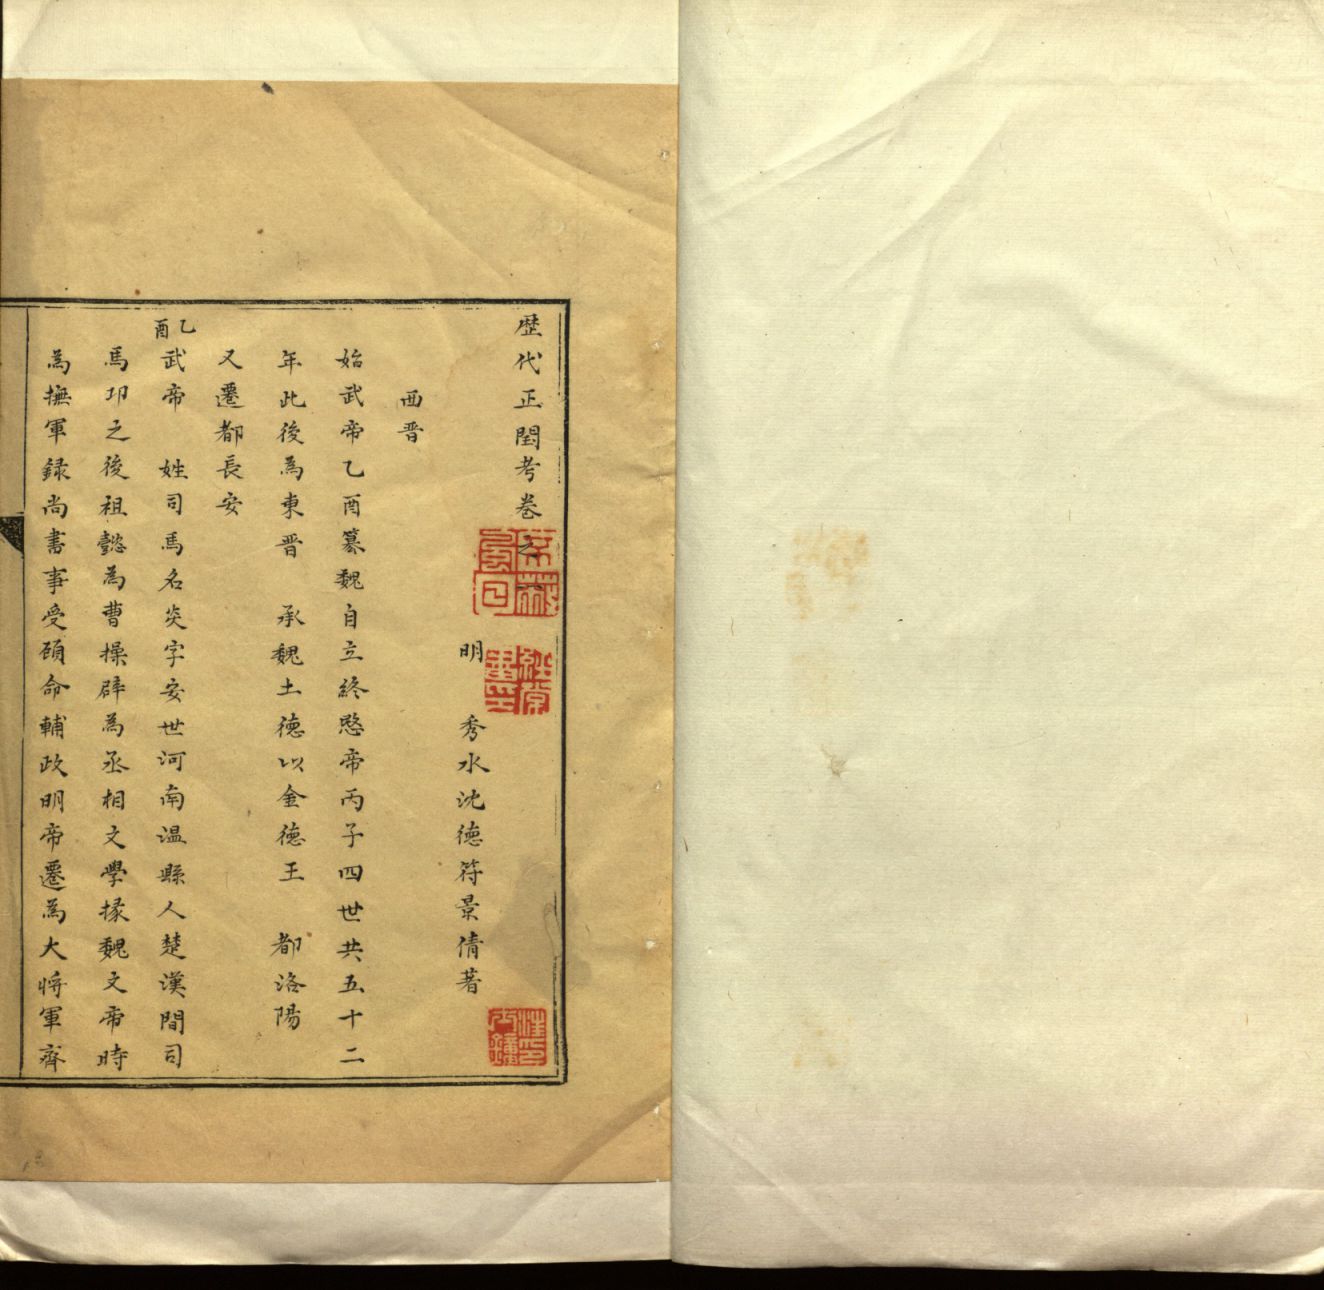 歷代正閏考卷之
明 秀水沈德符景倩著
西晉
始武帝乙酉纂魏自立終愍帝丙子四世共五十二
年此後為東晉 承魏土德以金德王 都洛陽
又遷都長安
乙酉
武帝 姓司馬名炎字安世河南温縣人楚漢間司
馬卬之後祖懿為曹操辟為丞相文學掾魏文帝時
為撫軍録尚書事受顧命輔政明帝遷為大將軍齊